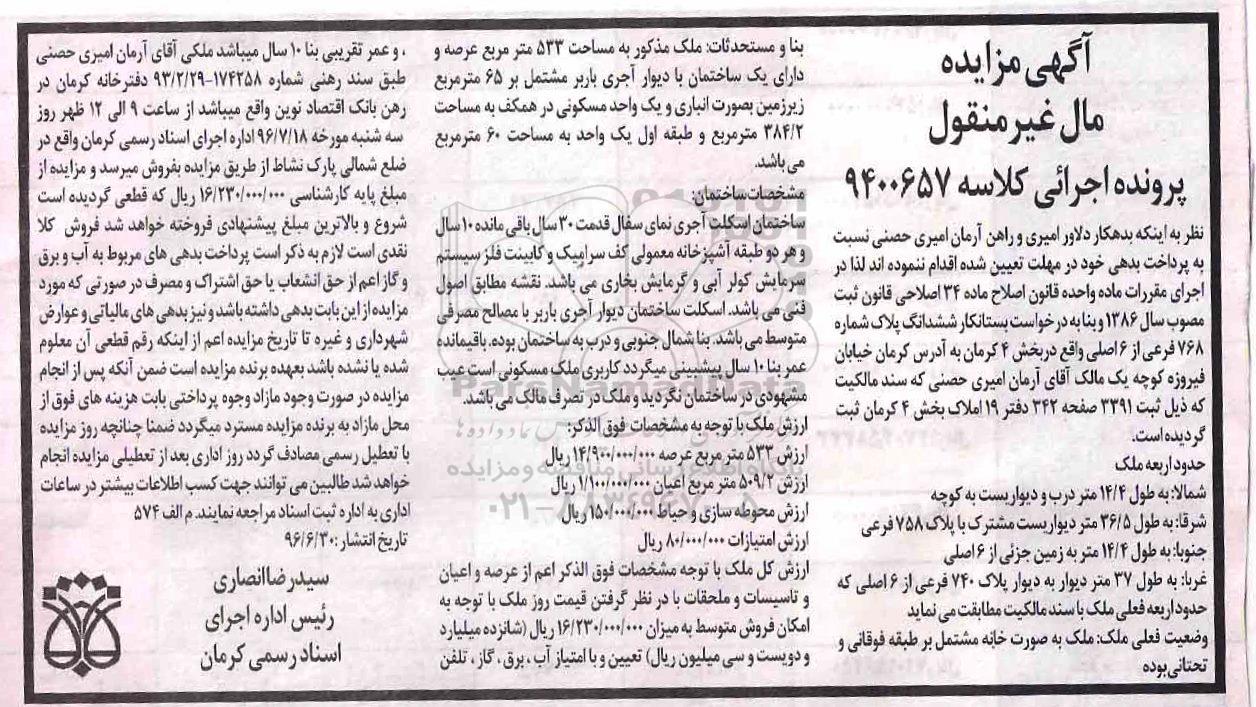 آگهی مزایده
مال غیر منقول
پرونده اجرائی کلاسه ۹۴۰۰۶۵۷
نظر به اینکه بدهکار دلاور امیری و راهن آرمان امیری حصنی نسبت
به پرداخت بدهی خود در مهلت تعیین شده اقدام ننموده اند لذا در
اجرای مقررات ماده واحده قانون اصلاح ماده ۳۴ اصلاحی قانون ثبت
مصوب سال ۱۳۸۶ و بنا به درخواست بستانکار ششدانگ پلاک شماره
۷۶۸ فرعی از ۶ اصلی واقع در بخش ۴ کرمان به آدرس کرمان خیابان
فیروزه کوچه یک مالک آقای آرمان امیری حصنی که سند مالکیت
که ذیل ثبت ۳۳۹۱ صفحه ۳۴۲ دفتر ۱۹ املاک بخش ۴ کرمان ثبت
گردیده است.
حدود اربعه ملک
شمالا: به طول ۱۴/۴ متر درب و دیواریست به کوچه
شرقا: به طول ۳۶/۵ متر دیواریست مشترک با پلاک ۷۵۸ فرعی
جنوبا: به طول ۱۴/۴ متر به زمین جزئی از ۶ اصلی
غربا: به طول ۳۷ متر دیوار به دیوار پلاک ۷۴۰ فرعی از ۶ اصلی که
حدود اربعه فعلی ملک با سند مالکیت مطابقت می نماید
وضعیت فعلی ملک: ملک به صورت خانه مشتمل بر طبقه فوقانی و
تحتانی بوده
بنا و مستحدثات: ملک مذکور به مساحت ۵۳۳ متر مربع عرصه و
دارای یک ساختمان با دیوار آجری باربر مشتمل بر ۶۵ مترمربع
زیرزمین بصورت انباری و یک واحد مسکونی در همکف به مساحت
۳۸۴/۲ مترمربع و طبقه اول یک واحد به مساحت ۶۰ مترمربع
می باشد.
مشخصات ساختمان:
ساختمان اسکلت آجری نمای سفال قدمت ۳۰ سال باقی مانده ۱۰ سال
و هر دو طبقه آشپزخانه معمولی کف سرامیک و کابینت فلز سیستم
سرمایش کولر آبی و گرمایش بخاری می باشد. نقشه مطابق اصول
فنی می باشد. اسکلت ساختمان دیوار آجری باربر با مصالح مصرفی
متوسط می باشد. بنا شمال جنوبی و درب به ساختمان بوده. باقیمانده
عمر بنا ۱۰ سال پیشبینی میگردد کاربری ملک مسکونی است عیب
مشهودی در ساختمان نگردید و ملک در تصرف مالک می باشد.
ارزش ملک با توجه به مشخصات فوق الذکر:
ارزش ۵۳۳ متر مربع عرصه ۱۴/۹۰۰/۰۰۰/۰۰۰ ریال
ارزش ۵۰۹/۲ متر مربع اعیان ۱/۱۰۰/۰۰۰/۰۰۰ ریال
ارزش محوطه سازی و حیاط ۱۵۰/۰۰۰/۰۰۰ ریال
ارزش امتیازات ۸۰/۰۰۰/۰۰۰ ریال
ارزش کل ملک با توجه مشخصات فوق الذکر اعم از عرصه و اعیان
و تاسیسات و ملحقات با در نظر گرفتن قیمت روز ملک با توجه به
امکان فروش متوسط به میزان ۱۶/۲۳۰/۰۰۰/۰۰۰ ریال (شانزده میلیارد
و دویست و سی میلیون ریال) تعیین و با امتیاز آب ، برق ، گاز ، تلفن
، و عمر تقریبی بنا ۱۰ سال میباشد ملکی آقای آرمان امیری حصنی
طبق سند رهنی شماره ۱۷۴۲۵۸-۹۳/۲/۲۹ دفترخانه کرمان در
رهن بانک اقتصاد نوین واقع میباشد از ساعت ۹ الی ۱۲ ظهر روز
سه شنبه مورخه ۹۶/۷/۱۸ اداره اجرای اسناد رسمی کرمان واقع در
ضلع شمالی پارک نشاط از طریق مزایده بفروش میرسد و مزایده از
مبلغ پایه کارشناسی ۱۶/۲۳۰/۰۰۰/۰۰۰ ریال که قطعی گردیده است
شروع و بالاترین مبلغ پیشنهادی فروخته خواهد شد فروش کلا
نقدی است لازم به ذکر است پرداخت بدهی های مربوط به آب و برق
و گاز اعم از حق انشعاب یا حق اشتراک و مصرف در صورتی که مورد
مزایده از این بابت بدهی داشته باشد و نیز بدهی های مالیاتی و عوارض
شهرداری و غیره تا تاریخ مزایده اعم از اینکه رقم قطعی آن معلوم
شده یا نشده باشد بعهده برنده مزایده است ضمن آنکه پس از انجام
مزایده در صورت وجود مازاد وجوه پرداختی بابت هزینه های فوق از
محل مازاد به برنده مزایده مسترد میگردد ضمنا چنانچه روز مزایده
با تعطیل رسمی مصادف گردد روز اداری بعد از تعطیلی مزایده انجام
خواهد شد طالبین می توانند جهت کسب اطلاعات بیشتر در ساعات
اداری به اداره ثبت اسناد مراجعه نمایند. م الف ۵۷۴
تاریخ انتشار : ۹۶/۶/۳۰
سیدرضا انصاری
رئیس اداره اجرای
اسناد رسمی کرمان
ParsNamadData
پایگاه اطلاع رسانی مناقصه و مزایده